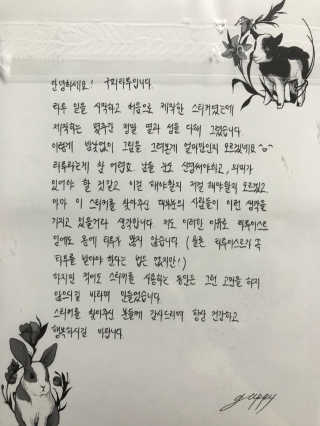 안녕하세요! 구피타투입니다.
타투 일을 시작하고 처음으로 제작한 스티커였는데
제작하는 몇주간 정말 열과 성을 다해 그렸습니다.
이렇게 밤낮없이 그림을 그려본게 얼마만인지 모르겠네요 ^o^
타투라는게 참 어렵죠. 남들 눈도 신경써야하고, 의미가
있어야 할 것같고 이걸 해야할지 저걸 해야할지 모르겠고.
아마 이 스티커를 찾아주신 대부분의 사람들이 이런 생각을
가지고 있을거라 생각합니다. 저도 이러한 이유로 타투이스트
임에도 몸에 타투가 많지 않습니다 (물론 타투이스트가 꼭
타투를 받아야 한다는 법은 없지만!)
하지만 적어도 스티커를 사용하는 동안은 그런 고민을 하지
않으시길 바라며 만들었습니다.
스티커를 찾아주신 분들께 감사드리며 항상 건강하고
행복하시길 바랍니다.
guppy